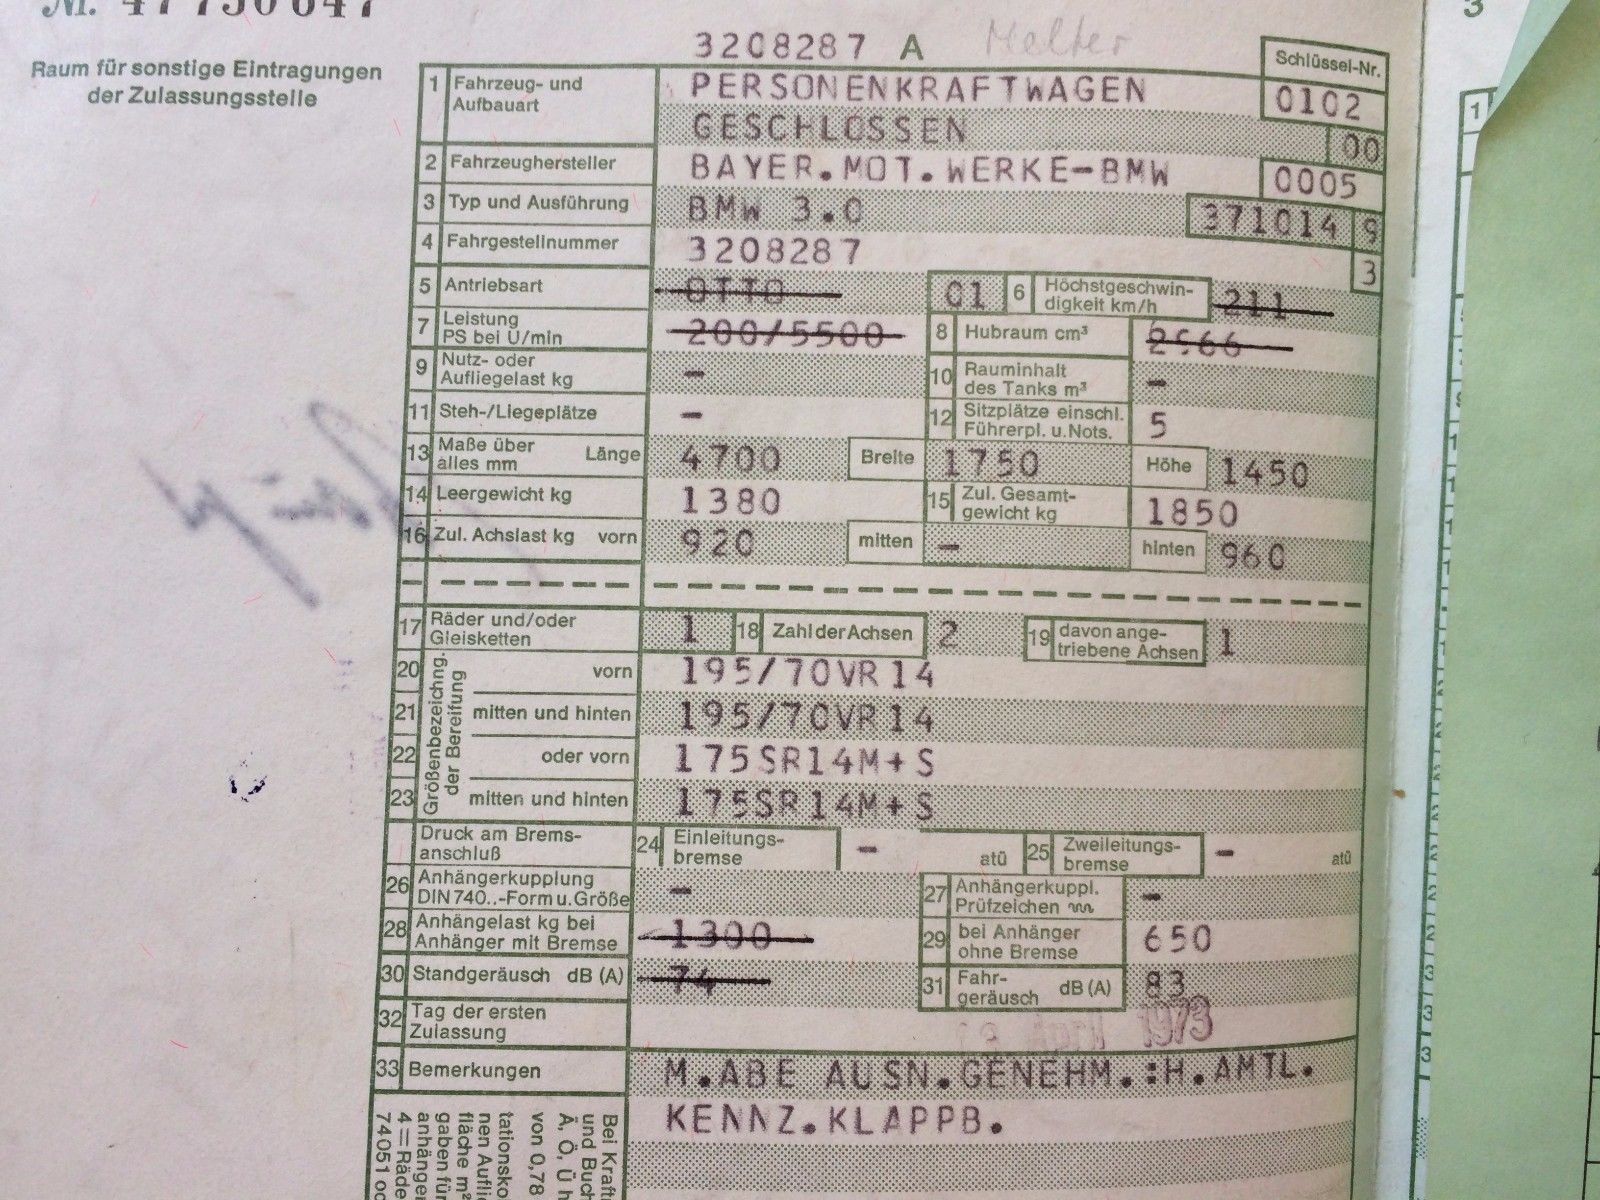 Raum für sonstige Eintragungen
der Zulassungsstelle
3208287 A Melter
Schlüssel-Nr.
1 Fahrzeug- und Aufbauart PERSONENKRAFTWAGEN 0102
GESCHLOSSEN 00
2 Fahrzeughersteller BAYER.MOT.WERKE-BMW 0005
3 Typ und Ausführung BMW 3.0 371014 9
4 Fahrgestellnummer 3208287 3
5 Antriebsart OTTO 01 6 Höchstgeschwin-digkeit km/h 211
7 Leistung PS bei U/min 200/5500 8 Hubraum cm³ 2966
9 Nutz- oder Aufliegelast kg - 10 Rauminhalt des Tanks m³ -
11 Steh-/Liegeplätze - 12 Sitzplätze einschl. Führerpl. u. Nots. 5
13 Maße über alles mm Länge 4700 Breite 1750 Höhe 1450
14 Leergewicht kg 1380 15 Zul. Gesamt-gewicht kg 1850
16 Zul. Achslast kg vorn 920 mitten - hinten 960
17 Räder und/oder Gleisketten 1 18 Zahl der Achsen 2 19 davon ange-triebene Achsen 1
Größenbezeichng. der Bereifung
20 vorn 195/70VR14
21 mitten und hinten 195/70VR14
22 oder vorn 175SR14M+S
23 mitten und hinten 175SR14M+S
Druck am Brems-anschluß 24 Einleitungs-bremse - atü 25 Zweileitungs-bremse - atü
26 Anhängerkupplung DIN 740..-Form u. Größe - 27 Anhängerkuppl. Prüfzeichen -
28 Anhängelast kg bei Anhänger mit Bremse 1300 29 bei Anhänger ohne Bremse 650
30 Standgeräusch dB (A) 74 31 Fahr-geräusch dB (A) 83
32 Tag der ersten Zulassung April 1973
33 Bemerkungen M.ABE AUSN.GENEHM.:H.AMTL.
KENNZ.KLAPPB.